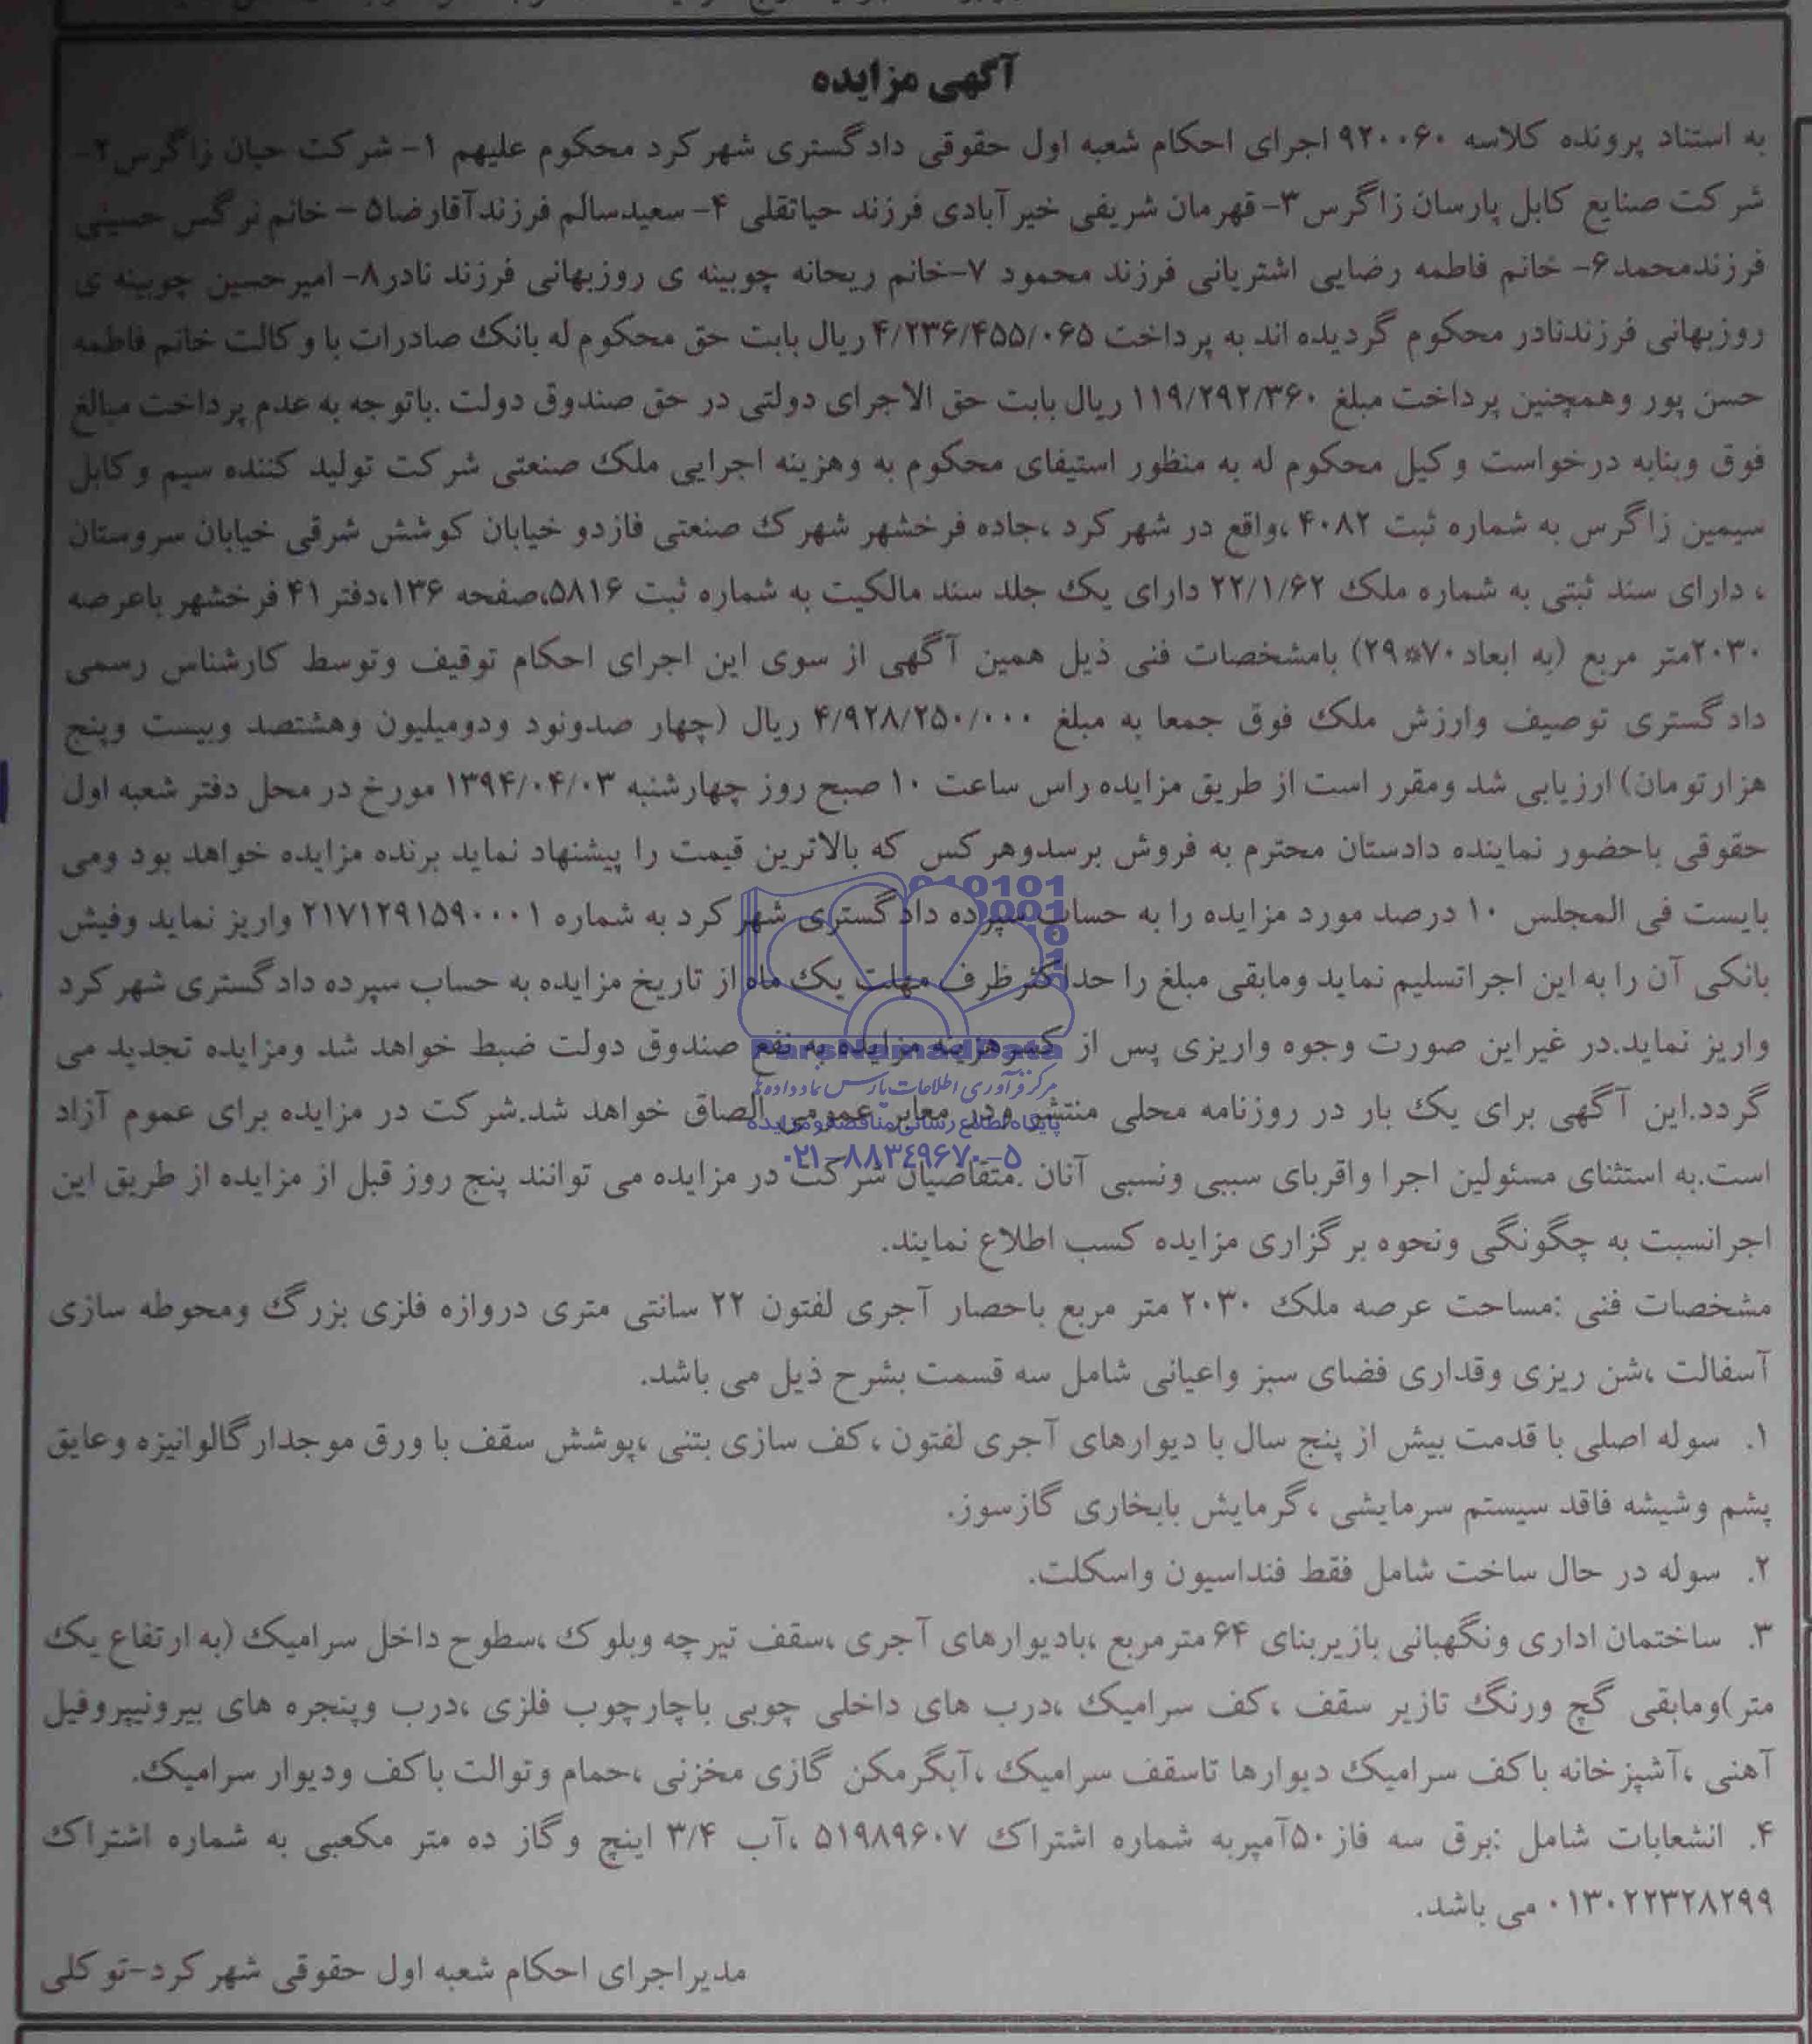 آگهی مزایده
به استناد پرونده کلاسه ۹۲۰۰۶۰ اجرای احکام شعبه اول حقوقی دادگستری شهرکرد محکوم علیهم ۱- شرکت حیان زاگرس۲-
شرکت صنایع کابل پارسان زاگرس ۳- قهرمان شریفی خیرآبادی فرزند حیاتقلی ۴- سعیدسالم فرزندآقارضا۵ - خانم نرگس حسینی
فرزندمحمد۶- خانم فاطمه رضایی اشتریانی فرزند محمود ۷-خانم ریحانه چوبینه ی روزبهانی فرزند نادر۸- امیرحسین چوبینه ی
روزبهانی فرزندنادر محکوم گردیده اند به پرداخت ۴/۲۳۶/۴۵۵/۰۶۵ ریال بابت حق محکوم له بانک صادرات با وکالت خانم فاطمه
حسن پور وهمچنین پرداخت مبلغ ۱۱۹/۲۹۲/۳۶۰ ریال بابت حق الاجرای دولتی در حق صندوق دولت .باتوجه به عدم پرداخت مبالغ
فوق وبنابه درخواست وکیل محکوم له به منظور استیفای محکوم به وهزینه اجرایی ملک صنعتی شرکت تولید کننده سیم وکابل
سیمین زاگرس به شماره ثبت ۴۰۸۲ ،واقع در شهرکرد ،جاده فرخشهر شهرک صنعتی فازدو خیابان کوشش شرقی خیابان سروستان
، دارای سند ثبتی به شماره ملک ۲۲/۱/۶۲ دارای یک جلد سند مالکیت به شماره ثبت ۵۸۱۶،صفحه ۱۳۶،دفتر ۴۱ فرخشهر باعرصه
۲۰۳۰متر مربع (به ابعاد۷۰*۲۹) بامشخصات فنی ذیل همین آگهی از سوی این اجرای احکام توقیف وتوسط کارشناس رسمی
دادگستری توصیف وارزش ملک فوق جمعا به مبلغ ۴/۹۲۸/۲۵۰/۰۰۰ ریال (چهار صدونود ودومیلیون وهشتصد وبیست وپنج
هزارتومان) ارزیابی شد ومقرر است از طریق مزایده راس ساعت ۱۰ صبح روز چهارشنبه ۱۳۹۴/۰۴/۰۳ مورخ در محل دفتر شعبه اول
حقوقی باحضور نماینده دادستان محترم به فروش برسدوهرکس که بالاترین قیمت را پیشنهاد نماید برنده مزایده خواهد بود ومی
بایست فی المجلس ۱۰ درصد مورد مزایده را به حساب سپرده دادگستری شهرکرد به شماره ۲۱۷۱۲۹۱۵۹۰۰۰۱ واریز نماید وفیش
بانکی آن را به این اجراتسلیم نماید ومابقی مبلغ را حداکثرظرف مهلت یک ماه از تاریخ مزایده به حساب سپرده دادگستری شهرکرد
واریز نماید.در غیراین صورت وجوه واریزی پس از کسرهزینه مزایده به نفع صندوق دولت ضبط خواهد شد ومزایده تجدید می
ParsNamadData
مرکز فرآوری اطلاعات پارس نماد داده ها
گردد.این آگهی برای یک بار در روزنامه محلی منتشر ودر معابر عمومی الصاق خواهد شد.شرکت در مزایده برای عموم آزاد
پایگاه اطلاع رسانی مناقصه و مزایده
۰۲۱-۸۸۳۴۹۶۷۰-۵
است.به استثنای مسئولین اجرا واقربای سببی ونسبی آنان .متقاضیان شرکت در مزایده می توانند پنج روز قبل از مزایده از طریق این
اجرانسبت به چگونگی ونحوه برگزاری مزایده کسب اطلاع نمایند.
مشخصات فنی :مساحت عرصه ملک ۲۰۳۰ متر مربع باحصار آجری لفتون ۲۲ سانتی متری دروازه فلزی بزرگ ومحوطه سازی
آسفالت ،شن ریزی وقداری فضای سبز واعیانی شامل سه قسمت بشرح ذیل می باشد.
۱. سوله اصلی با قدمت بیش از پنج سال با دیوارهای آجری لفتون ،کف سازی بتنی ،پوشش سقف با ورق موجدارگالوانیزه وعایق
پشم وشیشه فاقد سیستم سرمایشی ،گرمایش بابخاری گازسوز.
۲. سوله در حال ساخت شامل فقط فنداسیون واسکلت.
۳. ساختمان اداری ونگهبانی بازیربنای ۶۴ مترمربع ،بادیوارهای آجری ،سقف تیرچه وبلوک ،سطوح داخل سرامیک (به ارتفاع یک
متر)ومابقی گچ ورنگ تازیر سقف ،کف سرامیک ،درب های داخلی چوبی باچارچوب فلزی ،درب وپنجره های بیرونیپروفیل
آهنی ،آشپزخانه باکف سرامیک دیوارها تاسقف سرامیک ،آبگرمکن گازی مخزنی ،حمام وتوالت باکف ودیوار سرامیک.
۴. انشعابات شامل :برق سه فاز۵۰آمپربه شماره اشتراک ۵۱۹۸۹۶۰۷ ،آب ۳/۴ اینچ وگاز ده متر مکعبی به شماره اشتراک
۰۱۳۰۲۲۳۲۸۲۹۹ می باشد.
مدیراجرای احکام شعبه اول حقوقی شهرکرد-توکلی